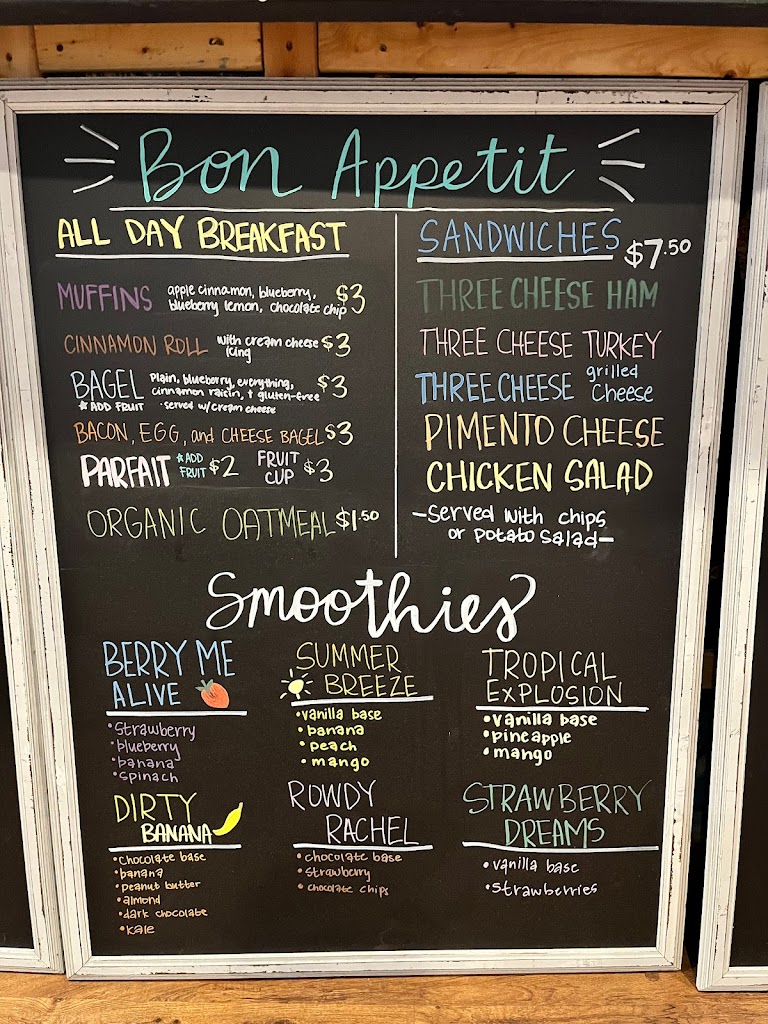 Bon Appetit
ALL DAY BREAKFAST
MUFFINS apple cinnamon, blueberry, $3
blueberry lemon, chocolate chip
CINNAMON ROLL with cream cheese $3
icing
BAGEL Plain, blueberry, everything, $3
cinnamon raisin, + gluten-free
★ ADD FRUIT · served w/cream cheese
BACON, EGG, and CHEESE BAGEL $3
PARFAIT ★ADD FRUIT $2 FRUIT CUP $3
ORGANIC OATMEAL $1.50
SANDWICHES $7.50
THREE CHEESE HAM
THREE CHEESE TURKEY
THREE CHEESE grilled cheese
PIMENTO CHEESE
CHICKEN SALAD
—served with chips
or potato salad—
Smoothies
BERRY ME
ALIVE
•strawberry
•blueberry
•banana
•spinach
SUMMER
BREEZE
•vanilla base
•banana
•peach
•mango
TROPICAL
EXPLOSION
•vanilla base
•pineapple
•mango
DIRTY
BANANA
•chocolate base
•banana
•peanut butter
•almond
•dark chocolate
•kale
ROWDY
RACHEL
•chocolate base
•strawberry
•chocolate chips
STRAWBERRY
DREAMS
•vanilla base
•strawberries